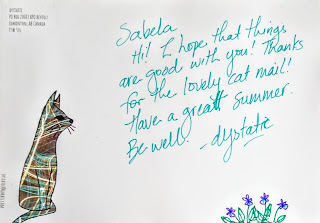 dystatic
Edmonton, AB Canada
Sabela
Hi! I hope that things
are good with you! Thanks
for the lovely cat mail!
Have a great summer.
Be well. - dystatic